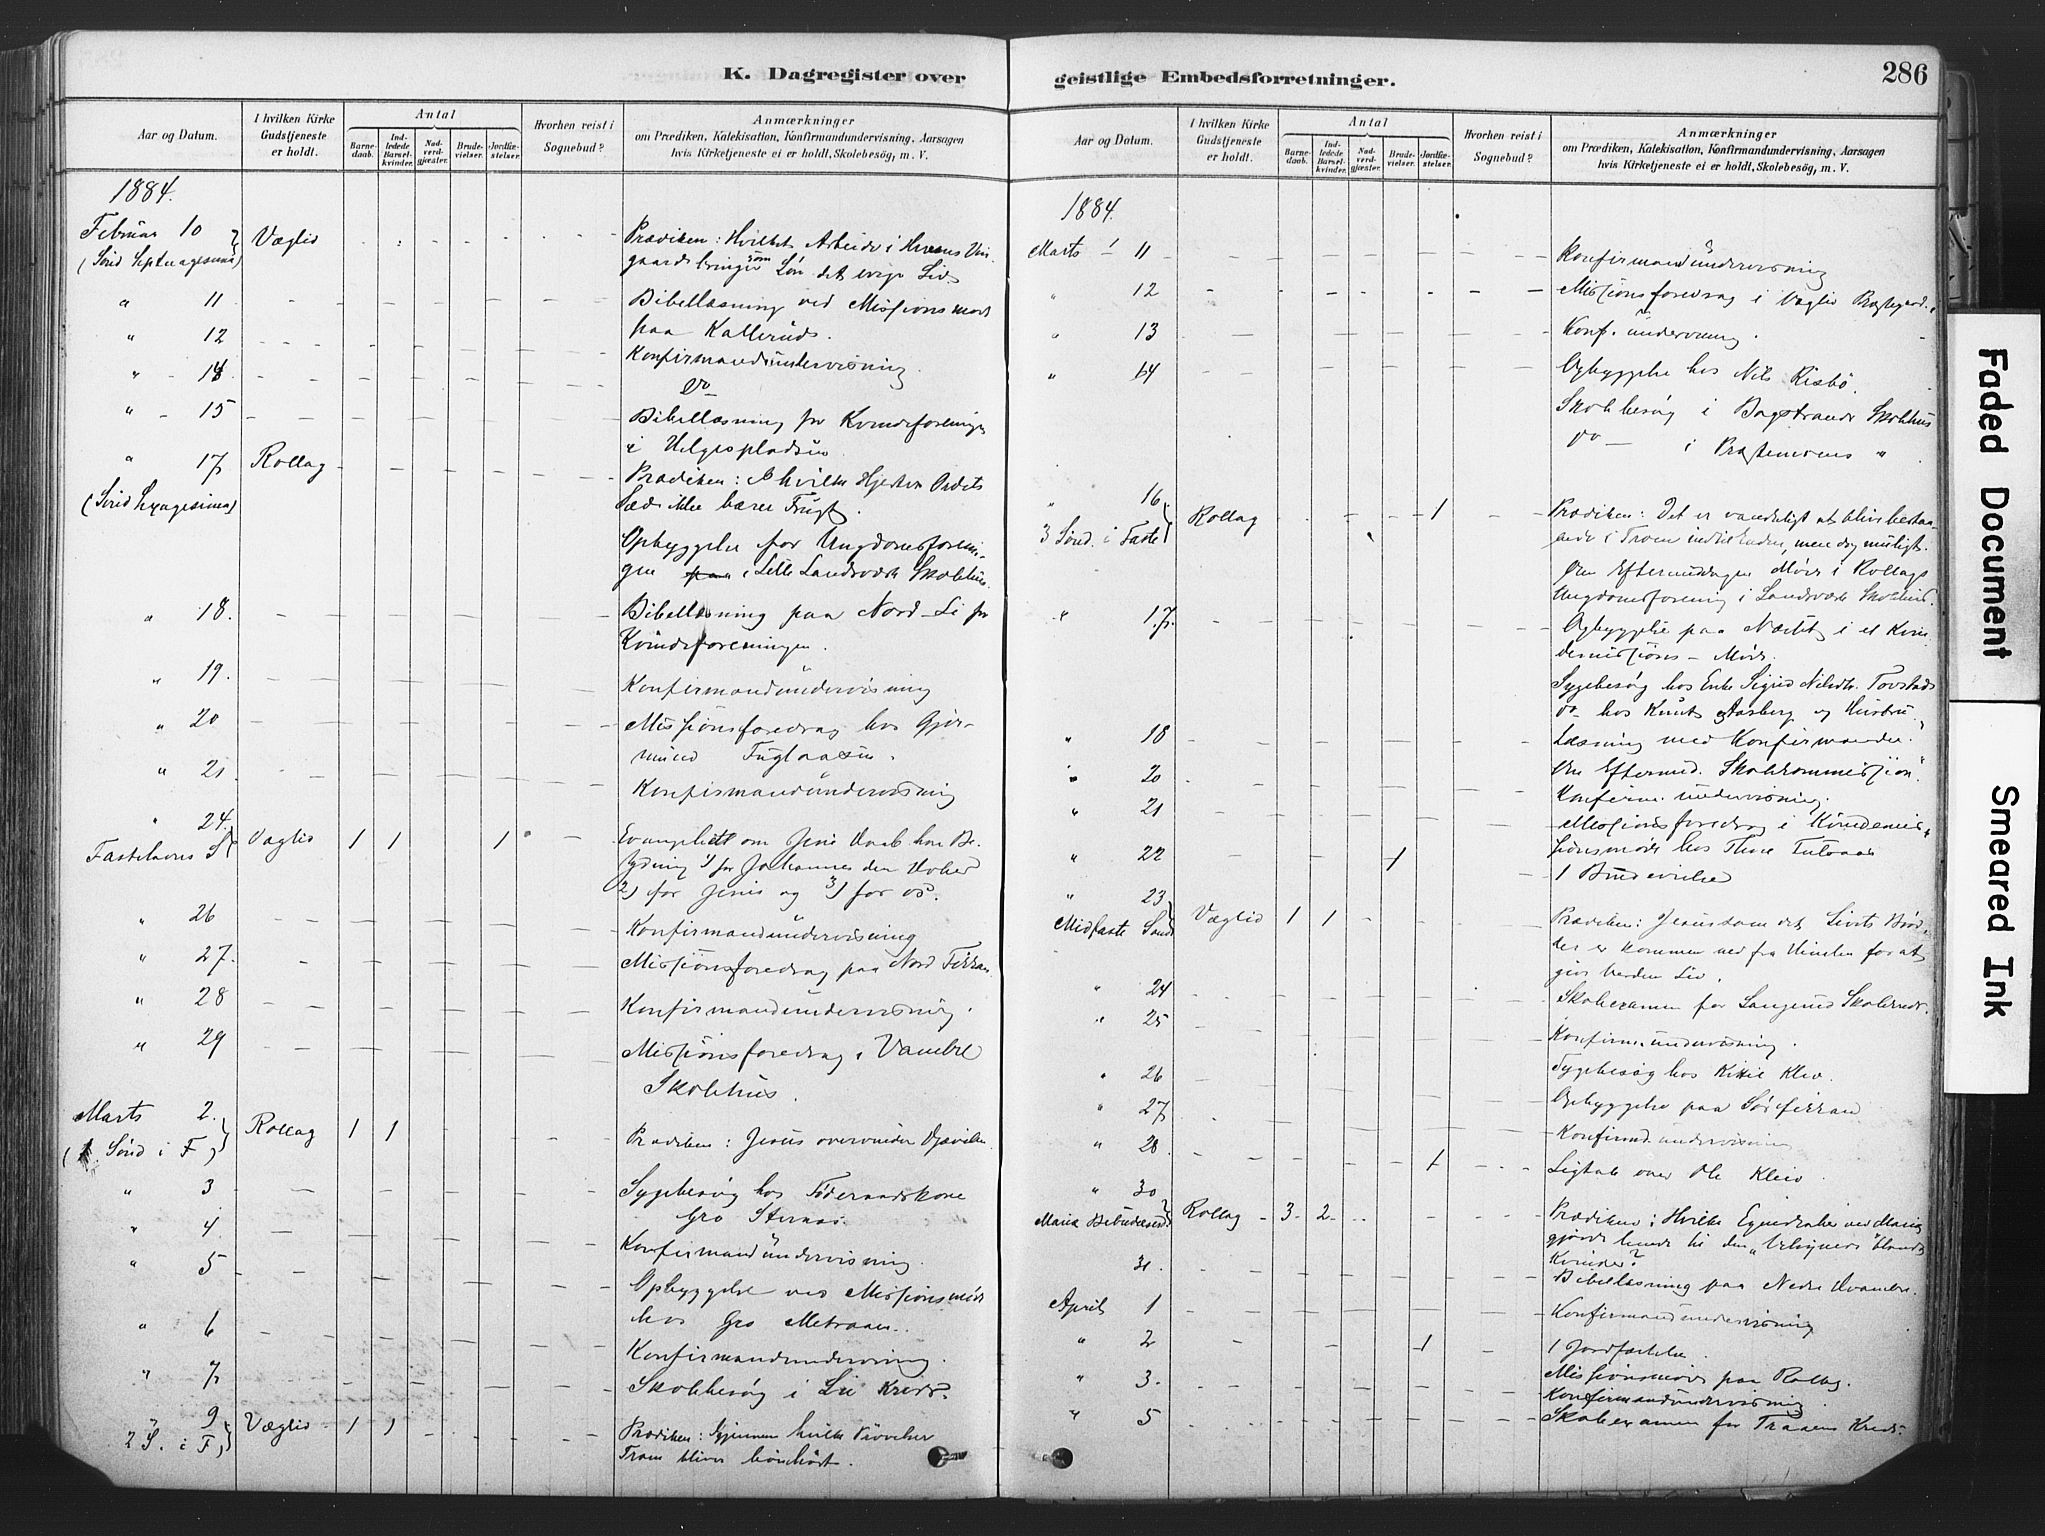 K. Dagregister over
Aar og Datum.
I hvilken Kirke Gudstjeneste er holdt.
Antal
Barnedaab.
Indledede Barselkvinder.
Nadverdgjester.
Brudevielser.
Jordfæstelser.
Hvorhen reist i Sognebud?
Anmærkninger
om Prædiken, Katekisation, Konfirmandundervisning, Aarsagen
hvis Kirketjeneste ei er holdt, Skolebesög, m. V.
1884.
Februar 10 Væglid Prædiken: Hvilket Arbeide i Herrens Vin
(Sønd Septuagesima) gaard bringer som Løn det evige Liv.
" 11 Bibellæsning ved Missionsmøde
paa Kallerud.
" 12 Konfirmandundervisning
" - 14 Do
" - 15 Bibellæsning for Kvindeforeningen
i Helgespladsen
" 17 Rollag Prædiken: I hvilke Hjerter Ordets
(Sønd Sexagesima) Sæd ikke bærer Frugt.
Opbyggelse for Ungdomsforenin-
gen i Lille Landsværk Skolehus.
" 18. Bibellæsning paa Nord-Li for
Kvindeforeningen.
" 19. Konfirmandundervisning
" 20 Missionsforedrag hos Gjer-
mund Fuglaasen.
" 21 Konfirmandundervisning
" 24. Væglid 1 1 1 Evangeliet om Jesu Daab har Be-
Fastelavns S tydning 1) for Johannes den Døber
2) for Jesus og 3) for os.
" 26 Konfirmandundervisning
" 27. Missionsforedrag paa Nord Fekjan
" 28 Konfirmandundervisning.
" 29 Missionsforedrag i
Skolehus.
Marts 2. Rollag 1 1 Prædiken: Jesus overvinder Djævelen
(1. Sønd i F)
" 3 Sygebesøg hos Føderaadskone
Gro Sternes.
" 4 Konfirmandundervisning.
" 5 Opbyggelse ved Missionsmøde
hos Gro
" 6 Konfirmandundervisning.
" 7 Skolebesøg i Lie Kreds.
9 Væglid 1 1 Prædiken: Gjennem hvilke Prøvelser
2 S. i F) Troen bliver bønhørt.
geistlige Embedsforretninger.
286
Aar og Datum.
I hvilken Kirke Gudstjeneste er holdt.
Antal
Barnedaab.
Indledede Barselkvinder.
Nadverdgjester.
Brudevielser.
Jordfæstelser.
Hvorhen reist i Sognebud?
Anmærkninger
om Prædiken, Katekisation, Konfirmandundervisning, Aarsagen
hvis Kirketjeneste ei er holdt, Skolebesög, m. V.
1884.
Marts 11 Konfirmandundervisning
" 12 Missionsforedrag i Væglid Præstegaard.
" 13 Konf. undervisning.
" 14 Opbyggelse hos Nils Risbø.
Skolebesøg i Bagstrands Skolehus
Do — i Præstemoens "
" 16 Rollag 1 Prædiken: Det er vanskeligt at blive bestaa-
3 Sønd. i Faste ende i Troen indtil Enden, men dog muligt.
Om Eftermiddagen Møde i Rollags
Ungdomsforening i Landsværk Skolehus.
" 17. Opbyggelse paa i et Kvin-
demissions-Møde.
Sygebesøg hos Enke Sigrid Nilsdtr. Tovstad
Do hos Knut Aasberg og Hustru
" 18 Læsning med Konfirmander.
Om Eftermd. Skolekommission.
" 20 Konfirm. undervisning.
" 21 Missionsforedrag i Kvindemis-
sionsmøde hos Thore
" 22 1 1 Brudevielse
" 23 Væglid 1 1 Prædiken: Jesus som det Livets Brød,
Midfaste Sønd. der er kommen ned fra Himlen for at
give Verden Liv.
" 24 Skoleexamen for Langerud Skolekreds.
" 25 Konfirm.undervisning.
" 26 Sygebesøg hos Kittil Kleiv.
" 27 Opbyggelse paa Sørfekjan
" 28 Konfirmd. undervisning
1 Ligtale over Ole Kleiv.
" 30 Rollag 3 2 Prædiken: Hvilke Egenskaber ved Maria
Mariæ Bebudelsesd. gjorde hende til den "velsignede" blandt
Kvinder?
31. Bibellæsning paa Nedre Kvambe.
April 1 Konfirmandundervisning
" 2 1 1 Jordfæstelse.
" 3. Missionsmøde paa Rollag.
Konfirmandundervisning.
" 5 Skoleexamen for Traaens Kreds.
Faded Document
Smeared Ink